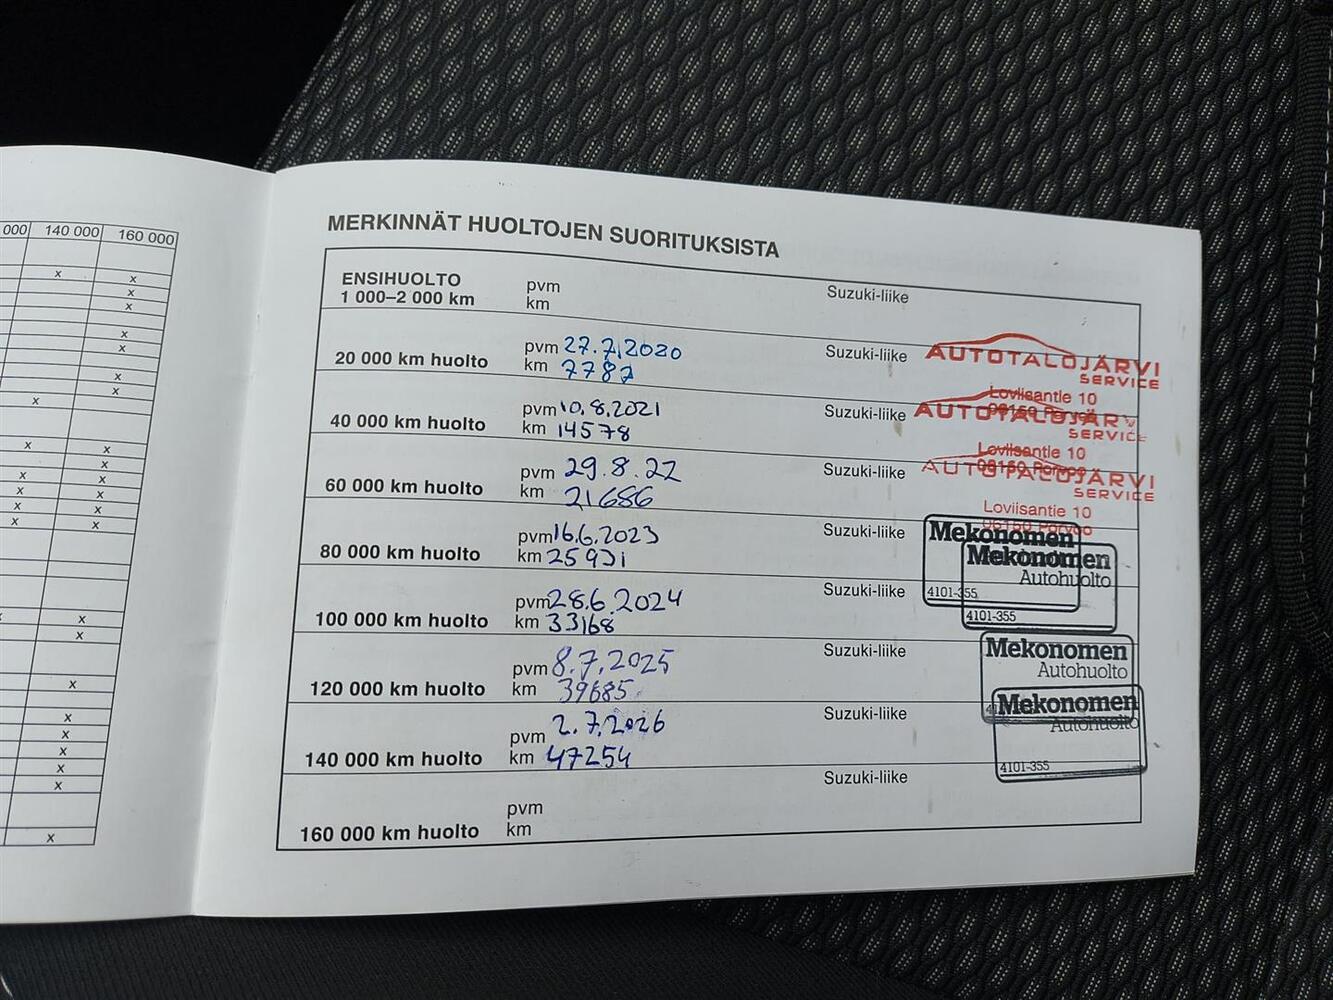 000 140 000 160 000
MERKINNÄT HUOLTOJEN SUORITUKSISTA
ENSIHUOLTO
1 000–2 000 km
pvm
km
Suzuki-liike
20 000 km huolto
pvm 27.7.2020
km 7787
Suzuki-liike
AUTOTALOJÄRVI
SERVICE
Loviisantie 10
40 000 km huolto
pvm 10.8.2021
km 14578
Suzuki-liike
AUTOTALOJÄRV
SERVICE
Loviisantie 10
06150 Porvoo
60 000 km huolto
pvm 29.8.22
km 21686
Suzuki-liike
AUTOTALOJÄRVI
SERVICE
Loviisantie 10
06150 Porvoo
80 000 km huolto
pvm 16.6.2023
km 25931
Suzuki-liike
Mekonomen
4101-355
100 000 km huolto
pvm 28.6.2024
km 33168
Suzuki-liike
Mekonomen
Autohuolto
4101-355
120 000 km huolto
pvm 8.7.2025
km 39685
Suzuki-liike
Mekonomen
Autohuolto
140 000 km huolto
pvm 2.7.2026
km 47254
Suzuki-liike
Mekonomen
Autohuolto
4101-355
160 000 km huolto
pvm
km
Suzuki-liike